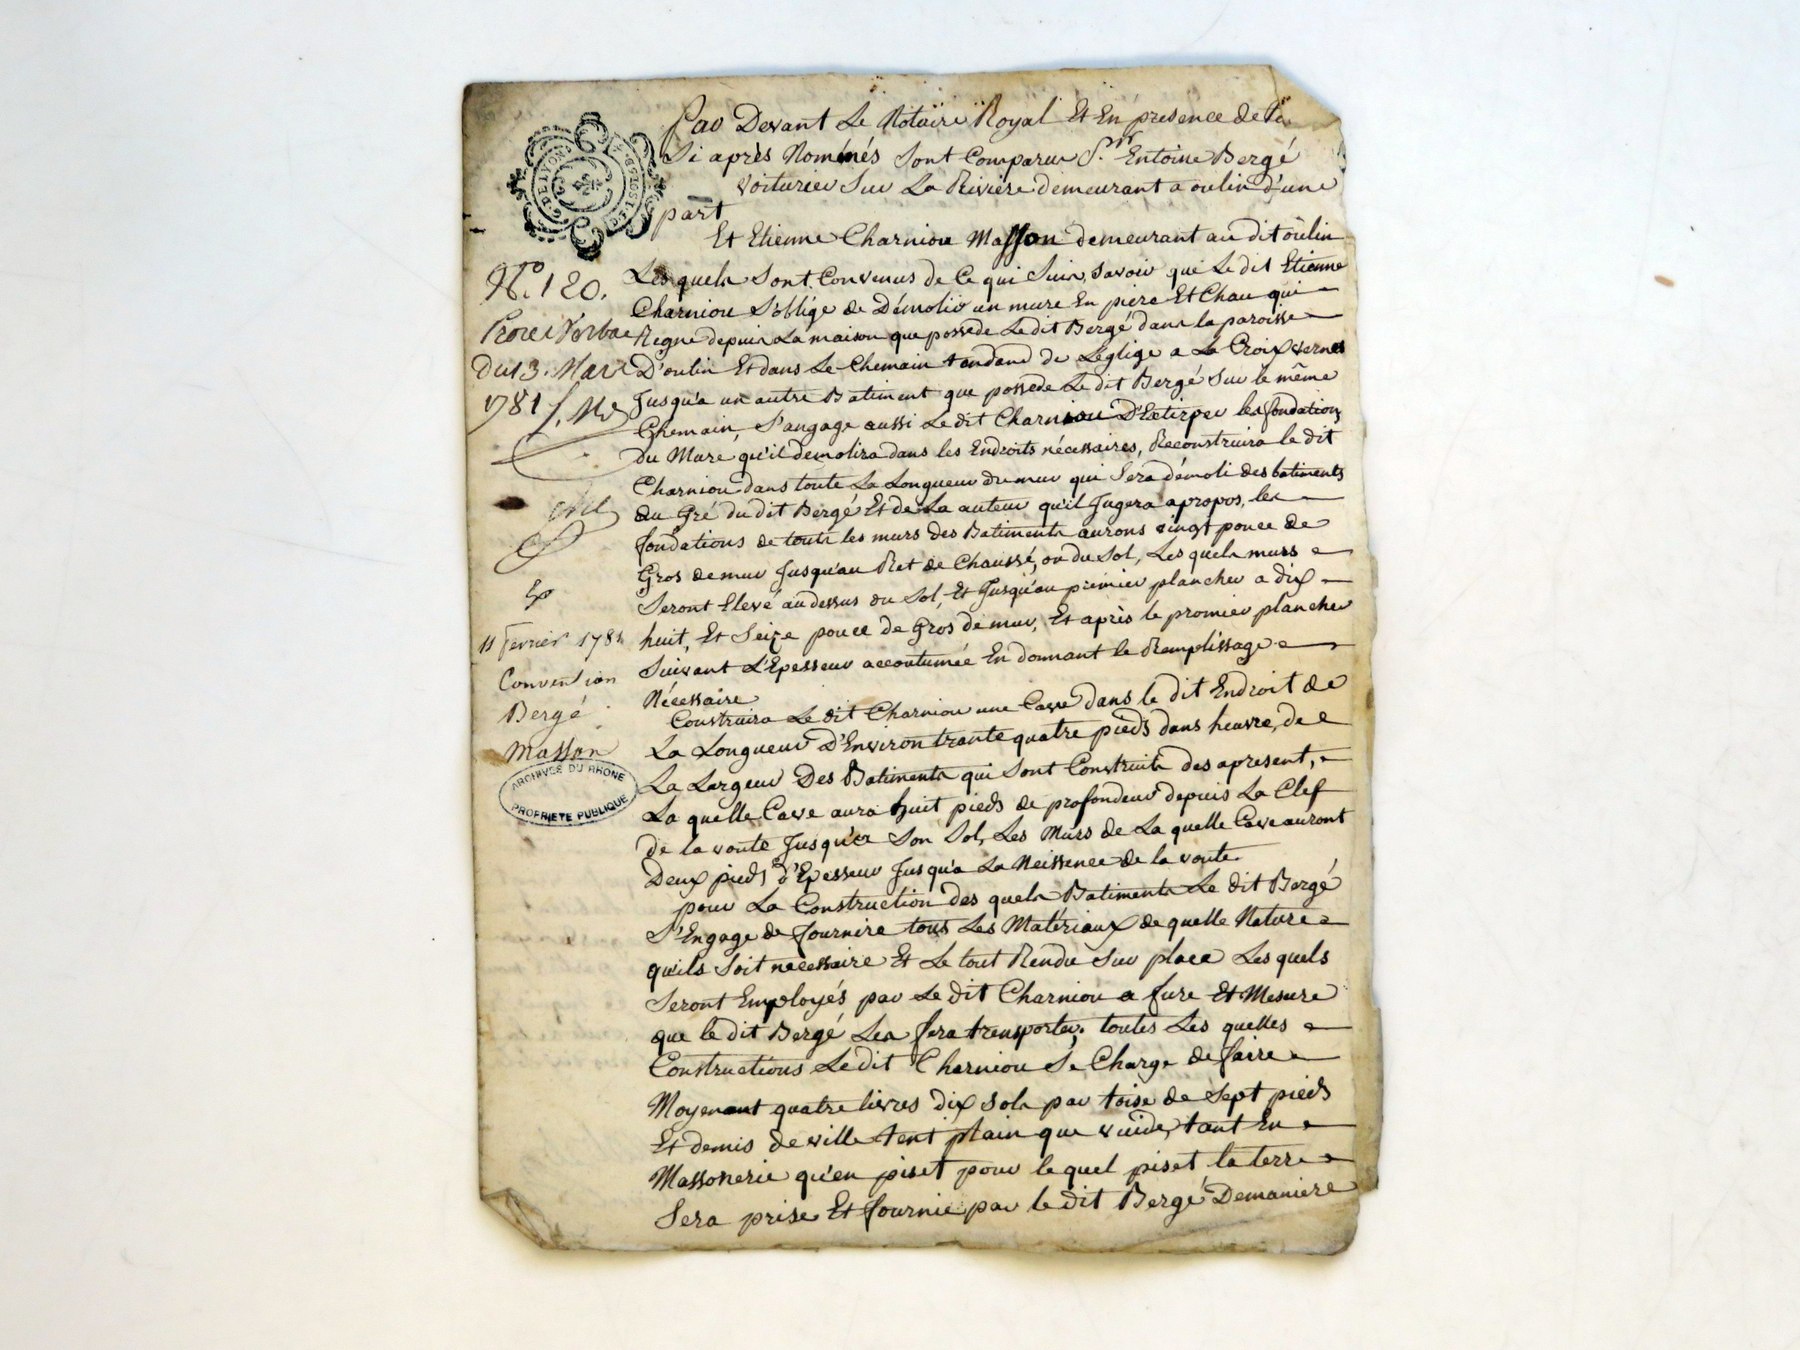 Par Devant Le Notaire Royal Et En présence de
Si après Nommés Sont Comparu S.r Entoine Bergé
voiturier Sur La Rivière demeurant a oulin d'une
part
Et Etienne Charniou Masson demeurant au dit oulin
Les quels Sont Convenus de Ce qui Suit, Savoir que Le dit Etienne
Charniou S'oblige de Démolir un mure En pière Et Chau qui
Regne depuis La maison que possede Ledit Bergé dans la paroisse
D'oulin Et dans Le Chemain tandand de Leglige a La Croix vernes
Jusqu'a un autre Batiment que possede Le dit Bergé Sur le même
Chemain, S'angage aussi Le dit Charniou D'Extirper les fondations
Du Mure qu'il demolira dans les Endroits nécessaires, Reconstruira le dit
Charniou dans toute La Longueur du mur qui Sera démoli des batiments
au Gré du dit Bergé Et de La auteur qu'il Jugera apropos, les
fondations de touts les murs des Batiments aurons vingt pouce de
Gros de mur Jusqu'au Ret de Chaussé, ou du Sol, Les quels murs
Seront Elevé au dessus du Sol, Et Jusqu'au prémier plancher a dix
huit, Et Seize pouce de Gros de mur, Et après le promier plancher
Suivant L'Epesseur accoutumée En donnant le Remplissage
Nécessaire
Construira Le dit Charniou une Cave dans le dit Endroit de
La Longueur D'Environ trante quatre pieds dans heuvre, de
La Largeur Des Batiments qui Sont Construits des apresent,
La quelle Cave aura huit pieds de profondeur depuis La Clef
de la voute Jusqu'a Son Sol, Les Murs de La quelle Cave auront
Deux pieds d'Epesseur Jusqu'a La Neissence de la voute
pour La Construction des quels Batiments Le dit Bergé
S'Engage de fournire tous Les Matériaux de quelle Nature
qu'ils Soit necessaire Et Le tout Rendu Sur place Les quels
Seront Employés par Le dit Charniou a fure Et Mesure
que le dit Bergé Les fera transporter, toutes Les quelles
Constructions Ledit Charniou Se Charge de faire
Moyenant quatre livres dix sols par toise de Sept pieds
Et demis de ville tent plain que vuide, tant En
Massonerie qu'en piset pour le quel piset la terre
Sera prise Et fournie par le dit Bergé Demaniere
G. DE LYON
N.º 120.
Procès Verbae
Du 13. Mars
1781
11 fevrier 178
Convention
Bergé
Masson
ARCHIVES DU RHONE
PROPRIETE PUBLIQUE